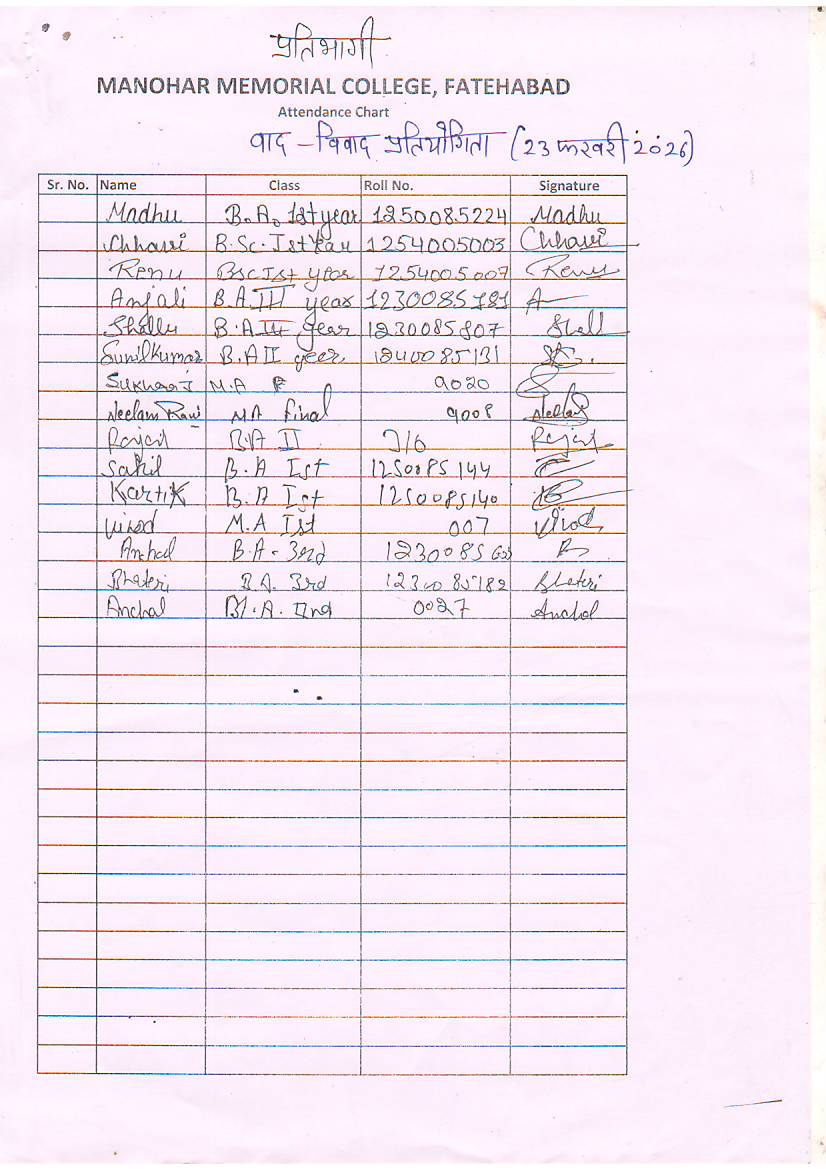 प्रतिभागी
MANOHAR MEMORIAL COLLEGE, FATEHABAD
Attendance Chart
वाद - विवाद प्रतियोगिता (23 फरवरी 2026)
Sr. No. Name Class Roll No. Signature
Madhu B.A. 1st year 1250085224 Madhu
Chhavi B.Sc. Ist Year 1254005003 Chhavi
Renu Bsc Ist year 1254005007 Renu
Anjali B.A III year 1230085181 A
Sholly B.A III year 1230085807 Shall
Sunil Kumar B.A II year 1240085131
Sukhraj M.A F 9020
Neelam Rani MA final 9008 Neelam
Rajat B.A II 716 Rajat
Sahil B.A Ist 1250085144
Kartik B.A Ist 1250085140
Vinod M.A Ist 007 Vinod
Anchal B.A - 3rd
Bhateri B.A. 3rd 1230085182 Bhateri
Anchal M.A. IInd 0027 Anchal